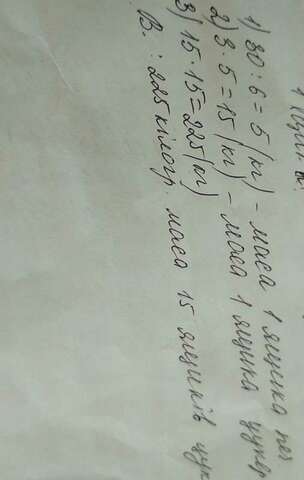 1)30:6=5(кг)-маса 1 ящика
2)3·5=15(кг)-маса 1 ящика
3)15·15=225(кг)
В.:225кілогр. маса 15 ящиків